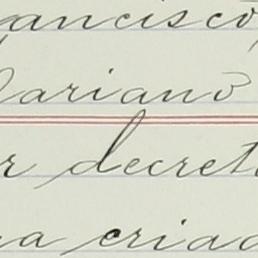 ancisco,
ariano
r decret
a criad